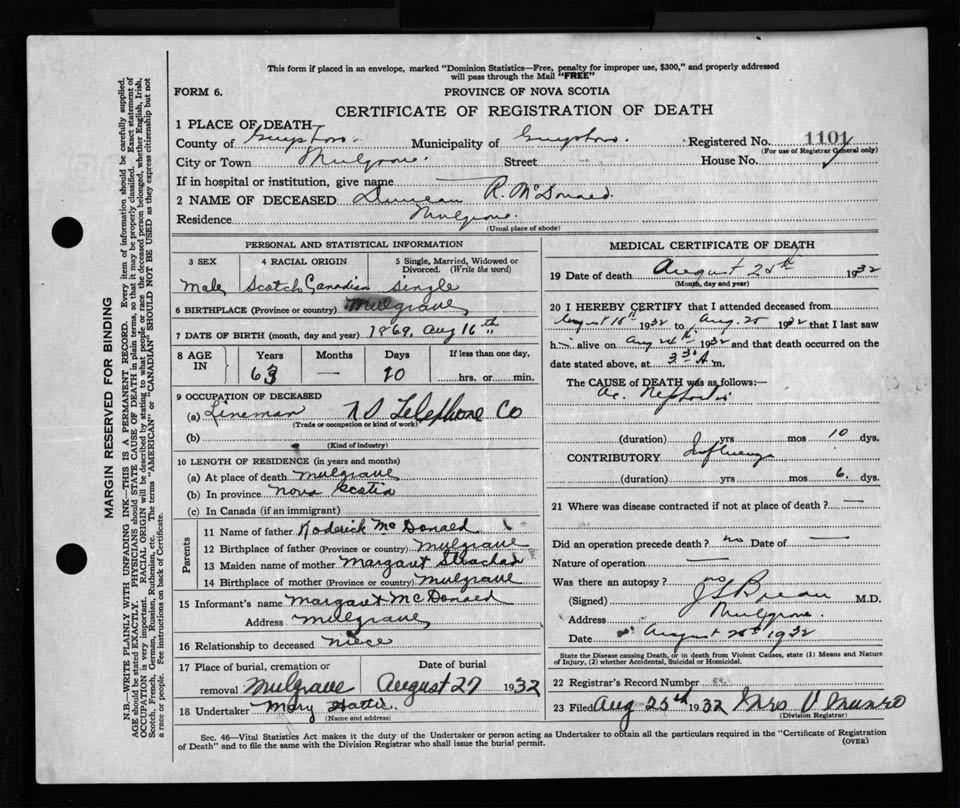 This form if placed in an envelope, marked "Dominion Statistics—Free, penalty for improper use, $300," and properly addressed
will pass through the Mail "FREE"
FORM 6.
PROVINCE OF NOVA SCOTIA
CERTIFICATE OF REGISTRATION OF DEATH
1 PLACE OF DEATH—
County of Municipality of Registered No. 1101
(For use of Registrar General only)
City or Town Mulgrave. Street House No.
If in hospital or institution, give name
2 NAME OF DECEASED Duncan R. McDonald
Residence Mulgrave.
(Usual place of abode)
PERSONAL AND STATISTICAL INFORMATION
3 SEX 4 RACIAL ORIGIN 5 Single, Married, Widowed or
Divorced. (Write the word)
Male Scotch Canadian Single
6 BIRTHPLACE (Province or country) Mulgrave
7 DATE OF BIRTH (month, day and year) 1869, Aug 16th
8 AGE IN Years Months Days If less than one day,
63 — 10 hrs. or min.
9 OCCUPATION OF DECEASED
(a) Lineman N S Telephone Co
(Trade or occupation or kind of work)
(b)
(Kind of industry)
10 LENGTH OF RESIDENCE (in years and months)
(a) At place of death Mulgrave
(b) In province Nova Scotia
(c) In Canada (if an immigrant)
Parents
11 Name of father Roderick McDonald
12 Birthplace of father (Province or country) Mulgrave
13 Maiden name of mother Margaret Strachan
14 Birthplace of mother (Province or country) Mulgrave
15 Informant's name Margaret McDonald
Address Mulgrave
16 Relationship to deceased Niece
17 Place of burial, cremation or Date of burial
removal Mulgrave August 27 1932
18 Undertaker Mary Hattie
(Name and address)
MEDICAL CERTIFICATE OF DEATH
19 Date of death August 25th 1932
(Month, day and year)
20 I HEREBY CERTIFY that I attended deceased from
August 15th 1932 to Aug. 25 1932 that I last saw
h alive on Aug 24th 1932 and that death occurred on
date stated above, at 3.30 A m.
The CAUSE of DEATH was as follows:—
Ac. Nephritis
(duration) yrs mos 10 dys.
CONTRIBUTORY Influenza
(duration) yrs mos 6 dys.
21 Where was disease contracted if not at place of death? —
Did an operation precede death? no Date of —
Nature of operation —
Was there an autopsy? no
(Signed) M.D.
Address Mulgrave
Date August 25th 1932
State the Disease causing Death, or in death from Violent Causes, state (1) Means and Nature
of Injury, (2) whether Accidental, Suicidal or Homicidal.
22 Registrar's Record Number
23 Filed Aug 25th 1932 Mrs V Munro
(Division Registrar)
Sec. 46—Vital Statistics Act makes it the duty of the Undertaker or person acting as Undertaker to obtain all the particulars required in the "Certificate of Registration
of Death" and to file the same with the Division Registrar who shall issue the burial permit.
(OVER)
MARGIN RESERVED FOR BINDING
N.B.—WRITE PLAINLY WITH UNFADING INK—THIS IS A PERMANENT RECORD. Every item of information should be carefully supplied.
AGE should be stated EXACTLY. PHYSICIANS should STATE CAUSE OF DEATH in plain terms, so that it may be properly classified. Exact statement of
OCCUPATION is very important. RACIAL ORIGIN will be described by stating to what people or race the deceased person belonged, whether English, Irish,
Scotch, French, German, Russian, Ruthenian, etc. The terms "AMERICAN" or "CANADIAN" SHOULD NOT BE USED as they express citizenship but not
a race or people. Fee instructions on back of Certificate.